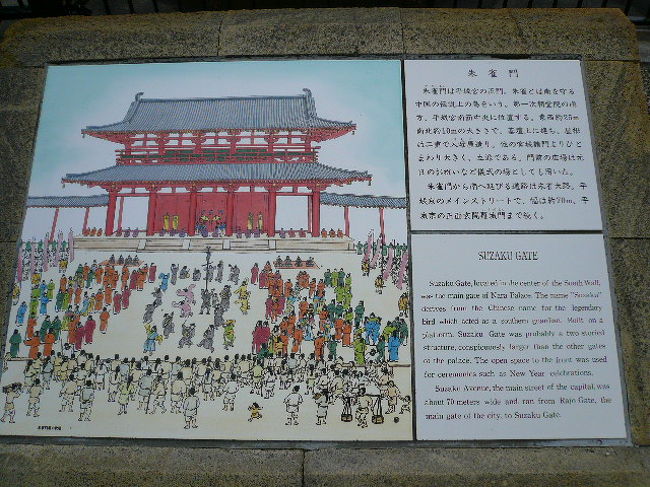 朱雀門
朱雀門は平城宮の正門。朱雀とは南を守る
中国の伝説上の鳥をいう。第一次朝堂院の南
方、平城宮南面中央に位置する。東西約25m
南北約10mの大きさで、基壇上に建ち、屋根
は二重で入母屋造り。他の宮城諸門よりひと
まわり大きく、立派である。門前の広場は元
日の
儀式の場として用いた。
朱雀門から南へ延びる道路は朱雀大路。平
城京のメインストリートで、幅は約70m、平
城京の正面玄関羅城門まで続く。
SUZAKU GATE
Suzaku Gate, located in the center of the South Wall,
was the main gate of Nara Palace. The name "Suzaku"
derives from the Chinese name for the legendary
bird which acted as a southern guardian. Built on a
platform, Suzaku Gate was probably a two storied
structure, conspicuously larger than the other gates
of the palace. The open space to the front was used
for ceremonies such as New Year celebrations.
Suzaku Avenue, the main street of the capital, was
about 70 meters wide and ran from Rajo Gate, the
main gate of the city, to Suzaku Gate.